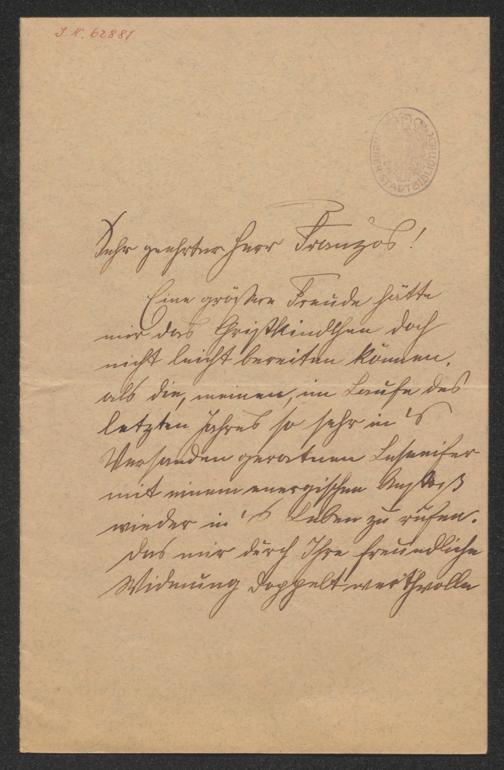 J. N. 62881
Sehr geehrter Herr Franzos!
Eine größere Freude hätte
mir das Christkindchen doch
nicht leicht bereiten können,
als die, meinen, im Laufe des
letzten Jahres so sehr in's
Versanden geratnen Leseeifer
mit einem energischen
wieder in's Leben zu rufen.
Das mir durch Ihre freundliche
Widmung doppelt werthvolle